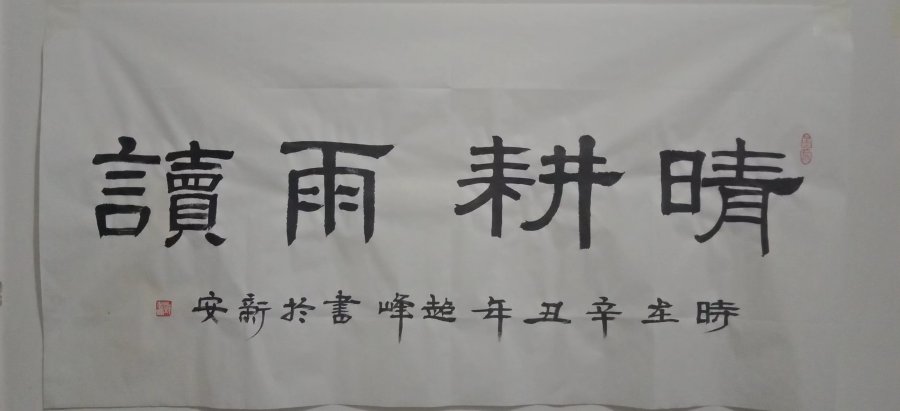 晴耕雨讀
時在辛丑年超峰書於新安